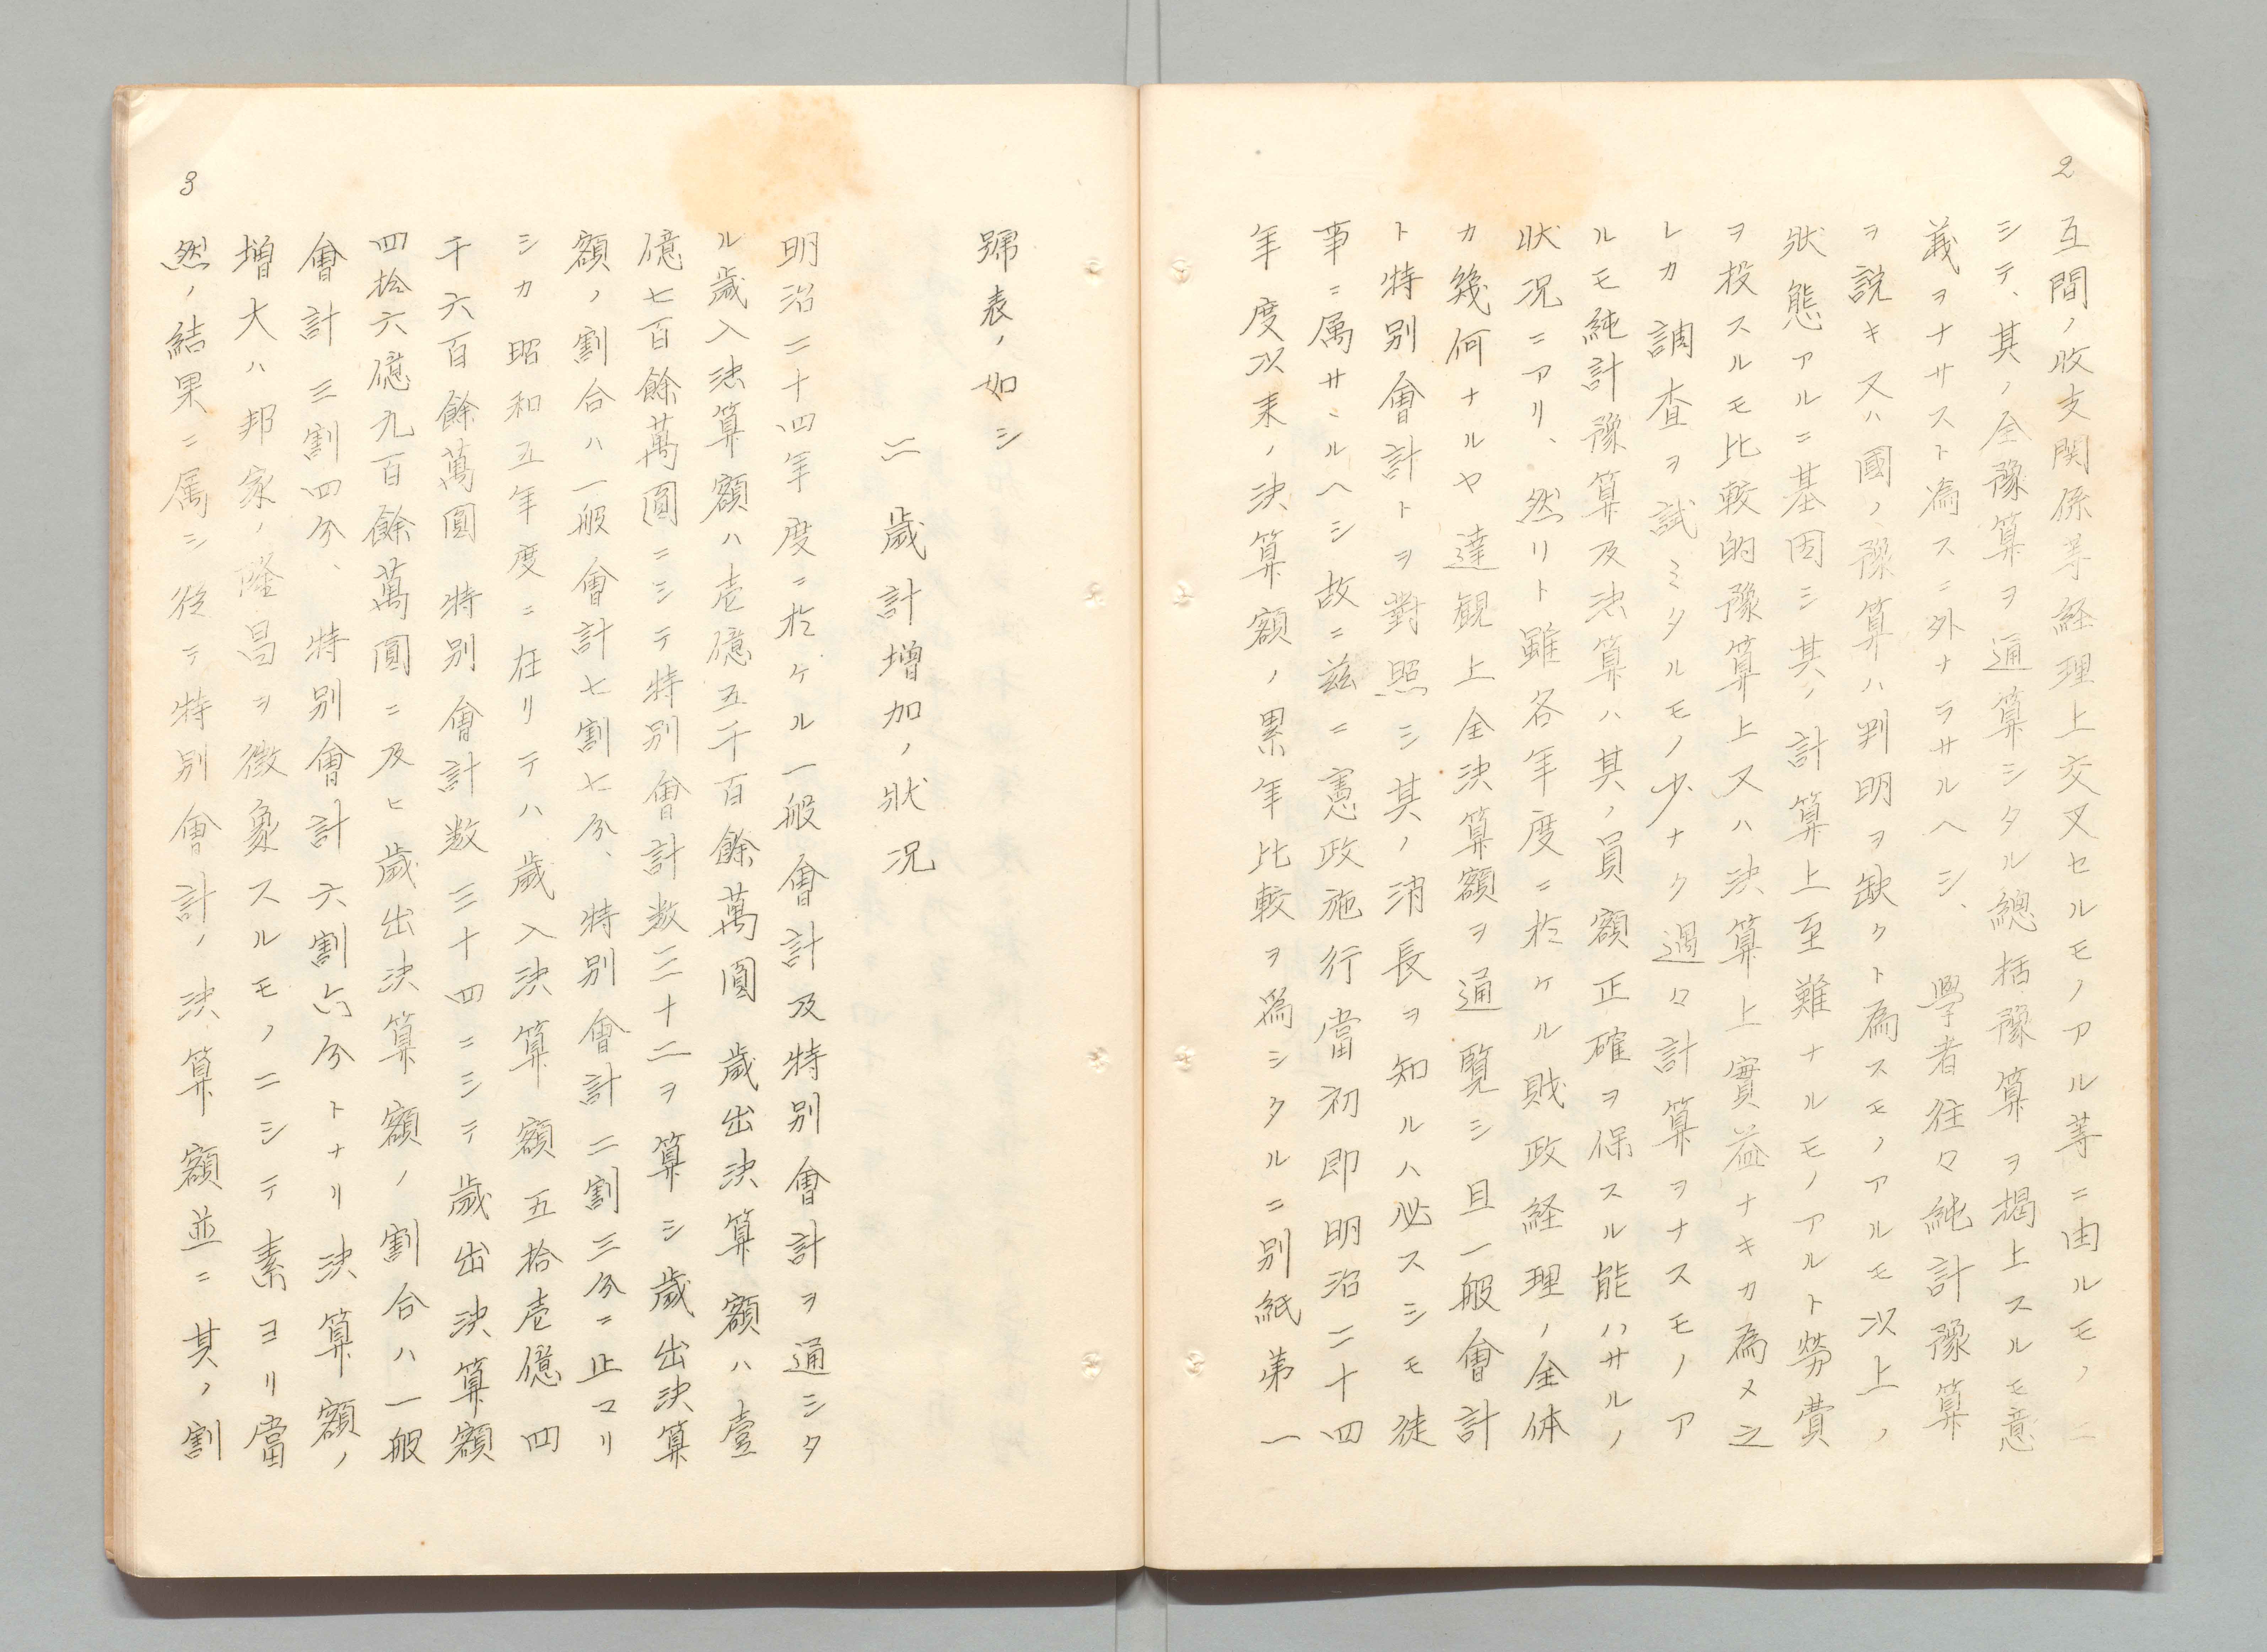 2
互間ノ收支関係等経理上交叉セルモノアル等ニ由ルモノニ
シテ、其ノ全豫算ヲ通算シタル總括豫算ヲ掲上スルモ意
義ヲナサスト為スニ外ナラサルヘシ、學者往々純計豫算
ヲ説キ又ハ國ノ豫算ハ判明ヲ缺クト為スモノアルモ以上ノ
狀態アルニ基因シ其ノ計算上至難ナルモノアルト勞費
ヲ投スルモ比較的豫算上又ハ決算上實益ナキカ為メ之
レカ調査ヲ試ミタルモノ少ナク過々計算ヲナスモノア
ルモ純計豫算及決算ハ其ノ員額正確ヲ保スル能ハサルノ
狀況ニアリ、然リト雖各年度ニ於ケル財政経理ノ全体
カ幾何ナルヤ達観上全決算額ヲ通覽シ且一般會計
ト特別會計トヲ對照シ其ノ消長ヲ知ルハ必スシモ徒
事ニ属サヽルヘシ故ニ茲ニ憲政施行當初即明治二十四
年度以来ノ決算額ノ累年比較ヲ爲シタルニ別紙第一
3
號表ノ如シ
二 歲計増加ノ狀況
明治二十四年度ニ於ケル一般會計及特別會計ヲ通シタ
ル歲入決算額ハ壱億五千百餘萬圓 歲出決算額ハ壹
億七百餘萬圓ニシテ特別會計数三十二ヲ算シ歲出決算
額ノ割合ハ一般會計七割七分、特別會計二割三分ニ止マリ
シカ昭和五年度ニ在リテハ歲入決算額五拾壱億四
千六百餘萬圓 特別會計数三十四ニシテ歲出決算額
四拾六億九百餘萬圓ニ及ヒ歲出決算額ノ割合ハ一般
會計三割四分、特別會計六割六分トナリ決算額ノ
増大ハ邦家ノ隆昌ヲ徴象スルモノニシテ素ヨリ當
然ノ結果ニ属シ從テ特別會計ノ決算額並ニ其ノ割